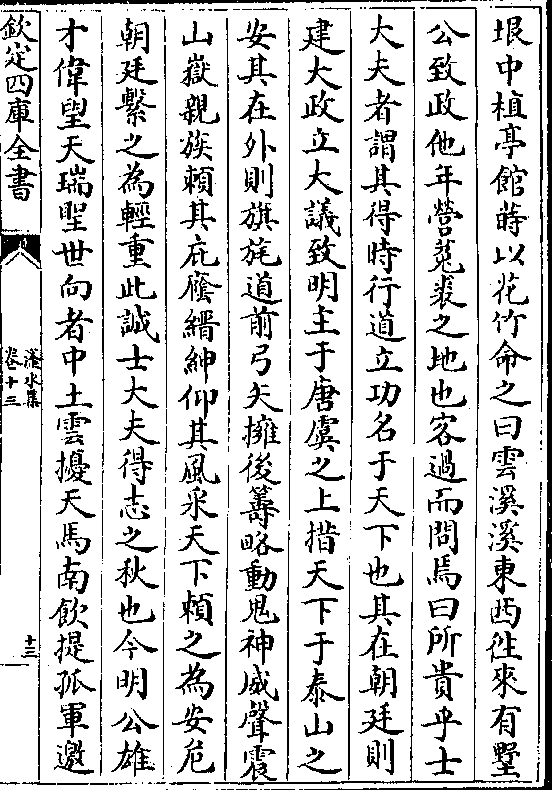 垠中植亭館蒔以花竹命之曰雲溪溪東西徃來有墅
公致政他年營菟裘之地也客過而問焉曰所貴乎士
大夫者謂其得時行道立功名于天下也其在朝廷則
建大政立大議致明主于唐虞之上措天下于泰山之
安其在外則旗旄道前弓矢擁後籌略動鬼神威聲震
山嶽親族頼其庇廕縉紳仰其風采天下頼之為安危
朝廷繫之為輕重此誠士大夫得志之秋也今明公雄
才偉望天瑞聖世向者中土雲擾天馬南飲提孤軍邀
欽定四庫全書
滏水集
卷十三
十三